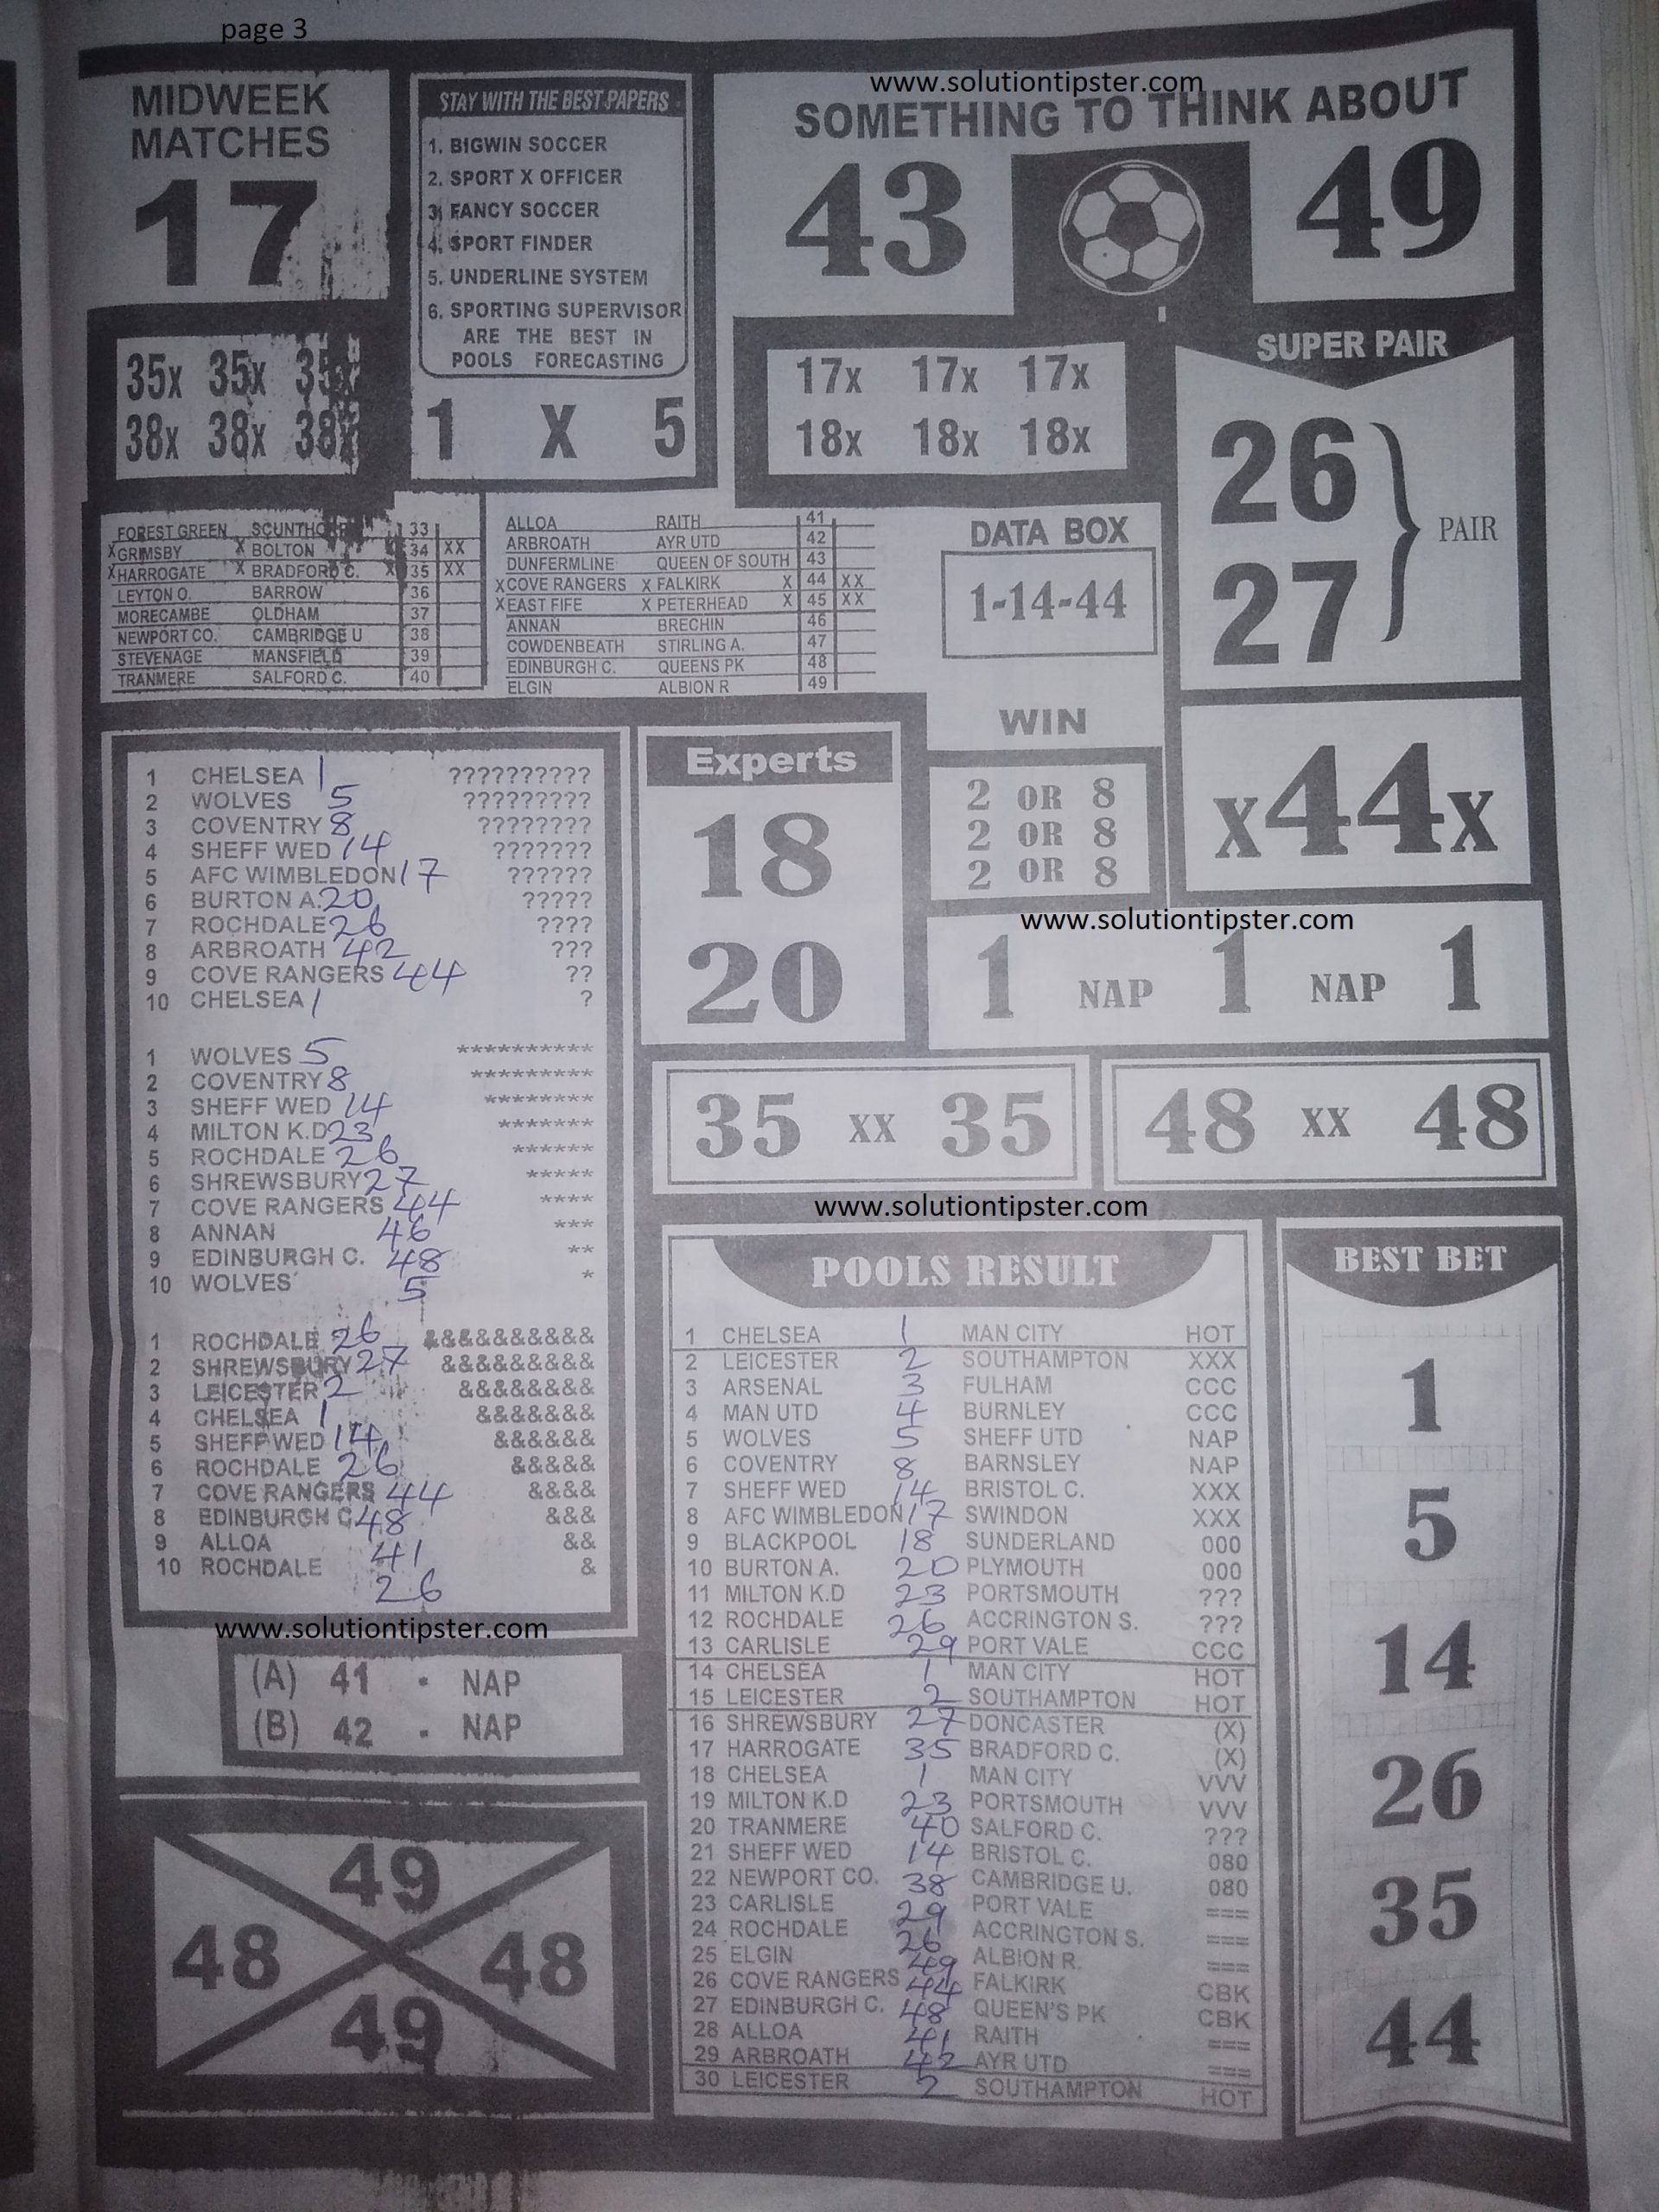 page 3
MIDWEEK
MATCHES
17
STAY WITH THE BEST PAPERS
1. BIGWIN SOCCER
2. SPORT X OFFICER
3. FANCY SOCCER
4. SPORT FINDER
5. UNDERLINE SYSTEM
6. SPORTING SUPERVISOR
ARE THE BEST IN
POOLS FORECASTING
1 X 5
www.solutiontipster.com
SOMETHING TO THINK ABOUT
43 49
35x 35x 35x
38x 38x 38x
17x 17x 17x
18x 18x 18x
SUPER PAIR
26
27
PAIR
FOREST GREEN 33
X GRIMSBY X BOLTON 34 XX
X HARROGATE X BRADFORD C. X 35 XX
LEYTON O. BARROW 36
MORECAMBE OLDHAM 37
NEWPORT CO. CAMBRIDGE U 38
STEVENAGE MANSFIELD 39
TRANMERE SALFORD C. 40
ALLOA RAITH 41
ARBROATH AYR UTD 42
DUNFERMLINE QUEEN OF SOUTH 43
X COVE RANGERS X FALKIRK X 44 XX
X EAST FIFE X PETERHEAD X 45 XX
ANNAN BRECHIN 46
COWDENBEATH STIRLING A. 47
EDINBURGH C. QUEENS PK 48
ELGIN ALBION R 49
DATA BOX
1-14-44
WIN
2 OR 8
2 OR 8
2 OR 8
X44X
1 CHELSEA 1 ??????????
2 WOLVES 5 ?????????
3 COVENTRY 8 ????????
4 SHEFF WED 14 ???????
5 AFC WIMBLEDON 17 ??????
6 BURTON A. 20 ?????
7 ROCHDALE 26 ????
8 ARBROATH 42 ???
9 COVE RANGERS 44 ??
10 CHELSEA 1 ?
1 WOLVES 5 **********
2 COVENTRY 8 *********
3 SHEFF WED 14 ********
4 MILTON K.D 23 *******
5 ROCHDALE 26 ******
6 SHREWSBURY 27 *****
7 COVE RANGERS 44 ****
8 ANNAN 46 ***
9 EDINBURGH C. 48 **
10 WOLVES 5 *
1 ROCHDALE 26 &&&&&&&&&&
2 SHREWSBURY 27 &&&&&&&&&
3 LEICESTER 2 &&&&&&&&
4 CHELSEA 1 &&&&&&&
5 SHEFF WED 14 &&&&&&
6 ROCHDALE 26 &&&&&
7 COVE RANGERS 44 &&&&
8 EDINBURGH C 48 &&&
9 ALLOA 41 &&
10 ROCHDALE 26 &
Experts
18
20
www.solutiontipster.com
1 NAP 1 NAP 1
35 XX 35
48 XX 48
www.solutiontipster.com
POOLS RESULT
1 CHELSEA 1 MAN CITY HOT
2 LEICESTER 2 SOUTHAMPTON XXX
3 ARSENAL 3 FULHAM CCC
4 MAN UTD 4 BURNLEY CCC
5 WOLVES 5 SHEFF UTD NAP
6 COVENTRY 8 BARNSLEY NAP
7 SHEFF WED 14 BRISTOL C. XXX
8 AFC WIMBLEDON 17 SWINDON XXX
9 BLACKPOOL 18 SUNDERLAND 000
10 BURTON A. 20 PLYMOUTH 000
11 MILTON K.D 23 PORTSMOUTH ???
12 ROCHDALE 26 ACCRINGTON S. ???
13 CARLISLE 29 PORT VALE CCC
14 CHELSEA 1 MAN CITY HOT
15 LEICESTER 2 SOUTHAMPTON HOT
16 SHREWSBURY 27 DONCASTER (X)
17 HARROGATE 35 BRADFORD C. (X)
18 CHELSEA 1 MAN CITY VVV
19 MILTON K.D 23 PORTSMOUTH VVV
20 TRANMERE 40 SALFORD C. ???
21 SHEFF WED 14 BRISTOL C. 080
22 NEWPORT CO. 38 CAMBRIDGE U. 080
23 CARLISLE 29 PORT VALE ===
24 ROCHDALE 26 ACCRINGTON S. ===
25 ELGIN 49 ALBION R. ===
26 COVE RANGERS 44 FALKIRK CBK
27 EDINBURGH C. 48 QUEEN'S PK CBK
28 ALLOA 41 RAITH ===
29 ARBROATH 42 AYR UTD ===
30 LEICESTER 2 SOUTHAMPTON HOT
BEST BET
1
5
14
26
35
44
www.solutiontipster.com
(A) 41 - NAP
(B) 42 - NAP
49
48 48
49